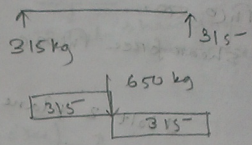 315kg 315
650 kg
315
315